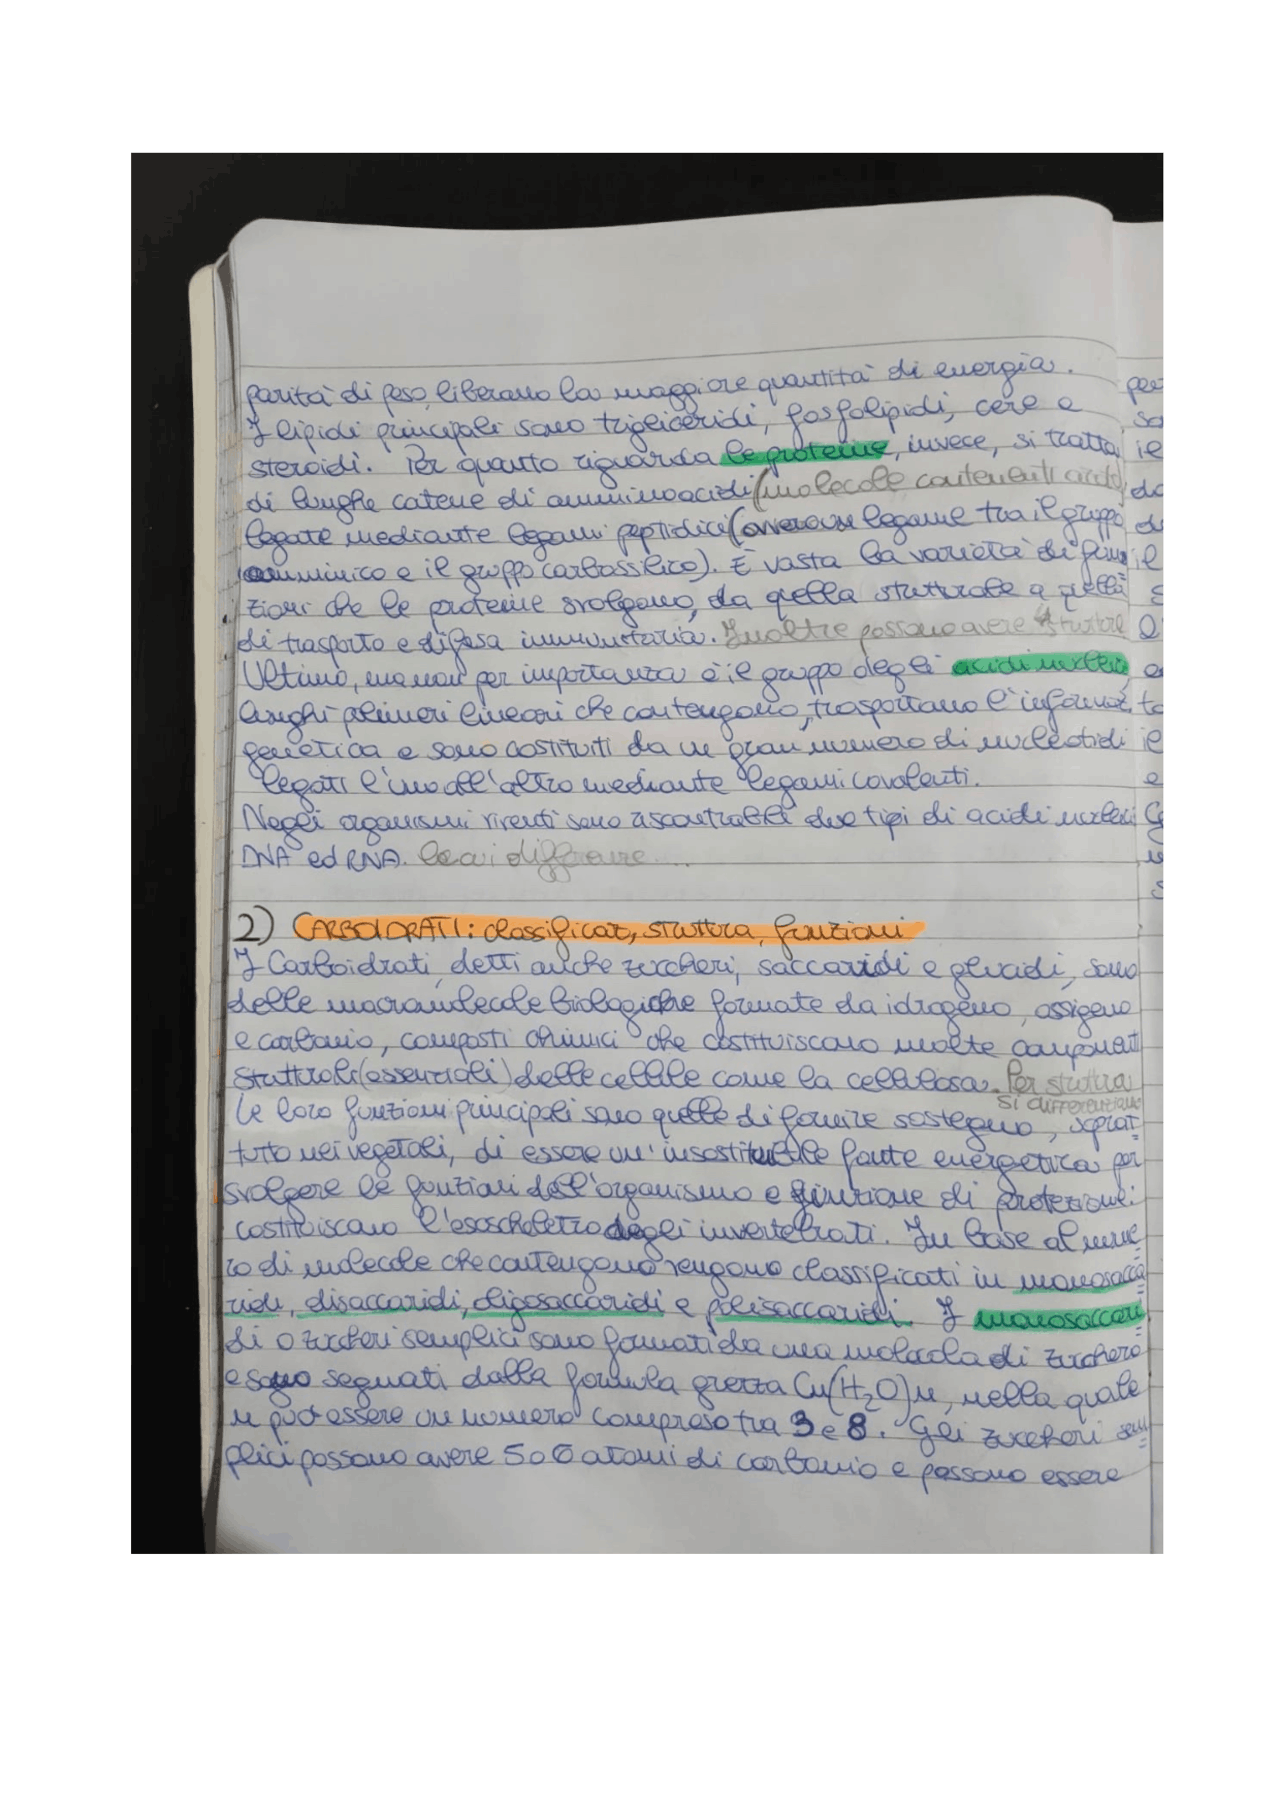 parità di peso, liberano la maggiore quantità di energia.
I lipidi principali sono trigliceridi, fosfolipidi, cere e
steroidi. Per quanto riguarda le proteine, invece, si tratta
di lunghe catene di amminoacidi (molecole contenenti
legate mediante legami peptidici (ovvero un legame tra il gruppo
amminico e il gruppo carbossilico). È vasta la varietà di fun
zioni che le proteine svolgono, da quella strutturale a quella
di trasporto e difesa immunitaria. Inoltre possono avere 4 strutture
Ultimo, ma non per importanza è il gruppo degli acidi nucleici,
lunghi polimeri lineari che contengono, trasportano l'informaz.
genetica e sono costituiti da un gran numero di nucleotidi
legati l'uno all'altro mediante legami covalenti.
Negli organismi viventi sono riscontrabili due tipi di acidi nucleici
DNA ed RNA. le cui differenze....
2) CARBOIDRATI: classificaz, struttura, funzioni
I Carboidrati, detti anche zuccheri, saccaridi e glucidi, sono
delle macromolecole biologiche formate da idrogeno, ossigeno
e carbonio, composti chimici che costituiscono molte componenti
strutturali (essenziali) delle cellule come la cellulosa. Per struttura
si differenziano
Le loro funzioni principali sono quelle di fornire sostegno, soprat=
tutto nei vegetali, di essere un'insostituibile fonte energetica per
svolgere le funzioni dell'organismo e funzione di protezione:
costituiscono l'esoscheletro degli invertebrati. In base al nume=
ro di molecole che contengono vengono classificati in monosacca=
ridi, disaccaridi, oligosaccaridi e polisaccaridi. I monosaccari
di o zuccheri semplici sono formati da una molecola di zucchero
e sono segnati dalla formula grezza Cn(H₂O)n, nella quale
n può essere un numero compreso tra 3 e 8. Gli zuccheri sem=
plici possono avere 5 o 6 atomi di carbonio e possono essere